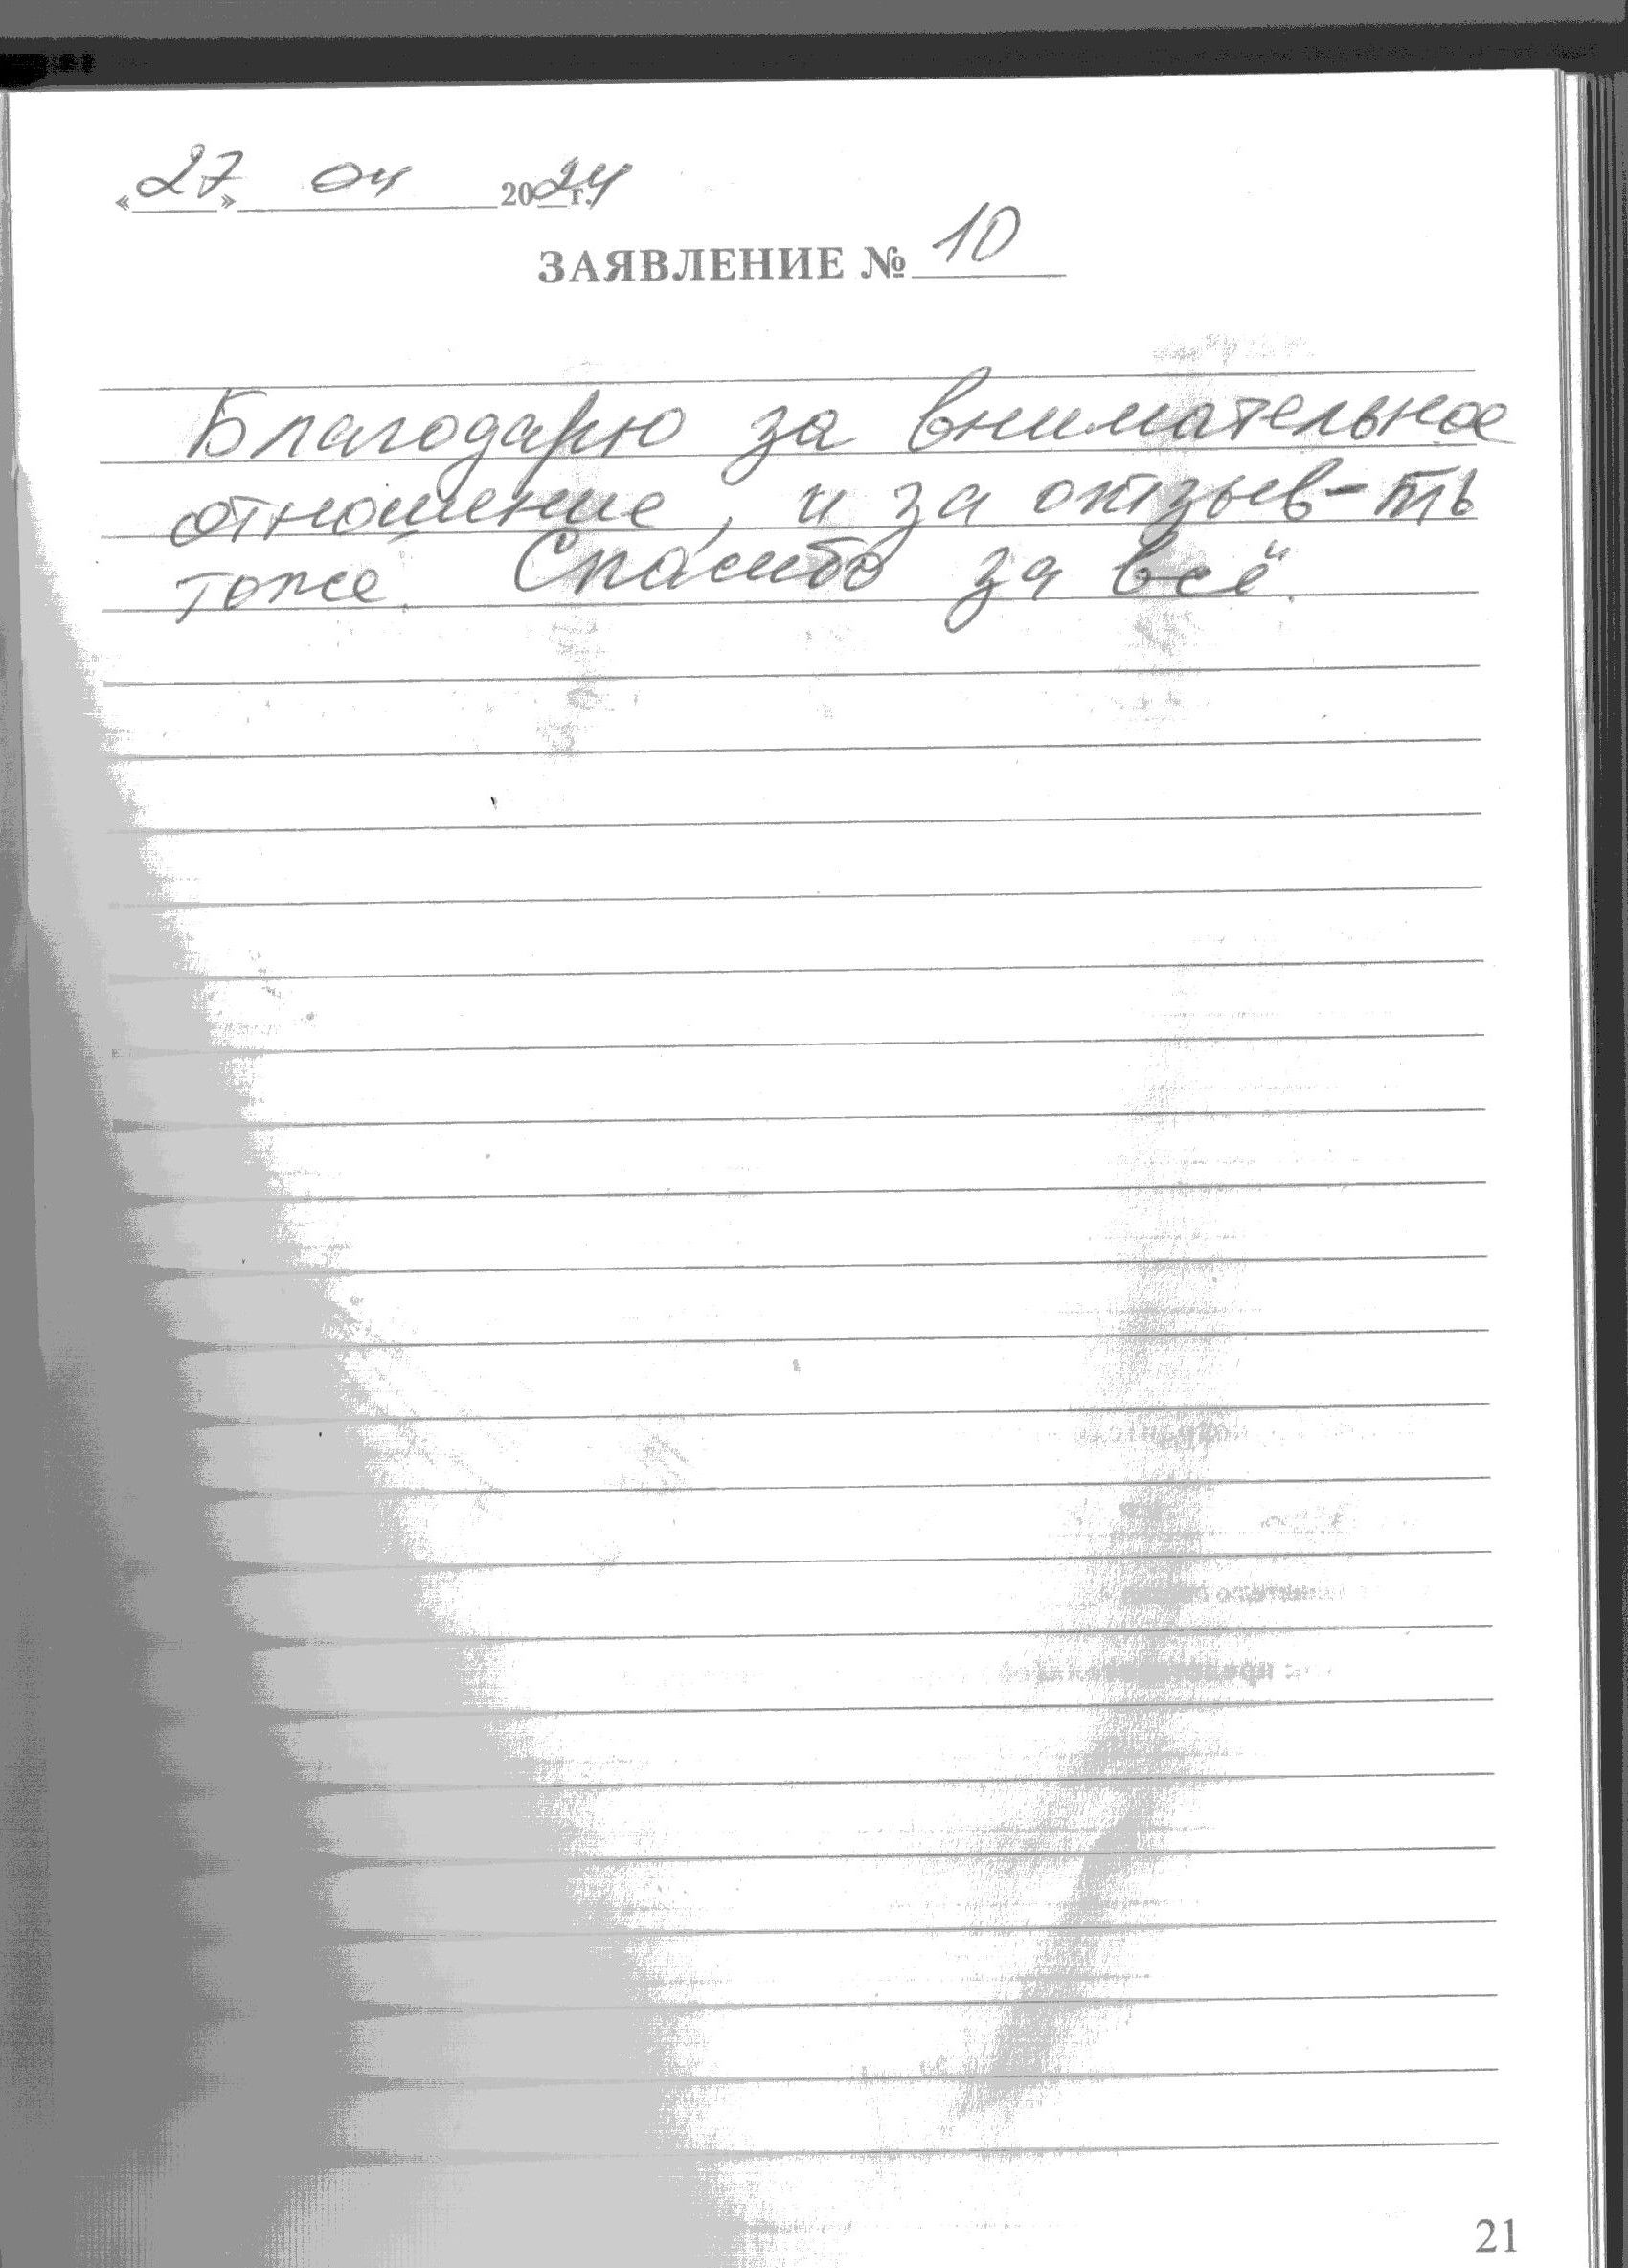 «27» 04 2024 г.
ЗАЯВЛЕНИЕ № 10
Благодарю за внимательное
отношение, и за отзыв-ть
тоже. Спасибо за всё.
21